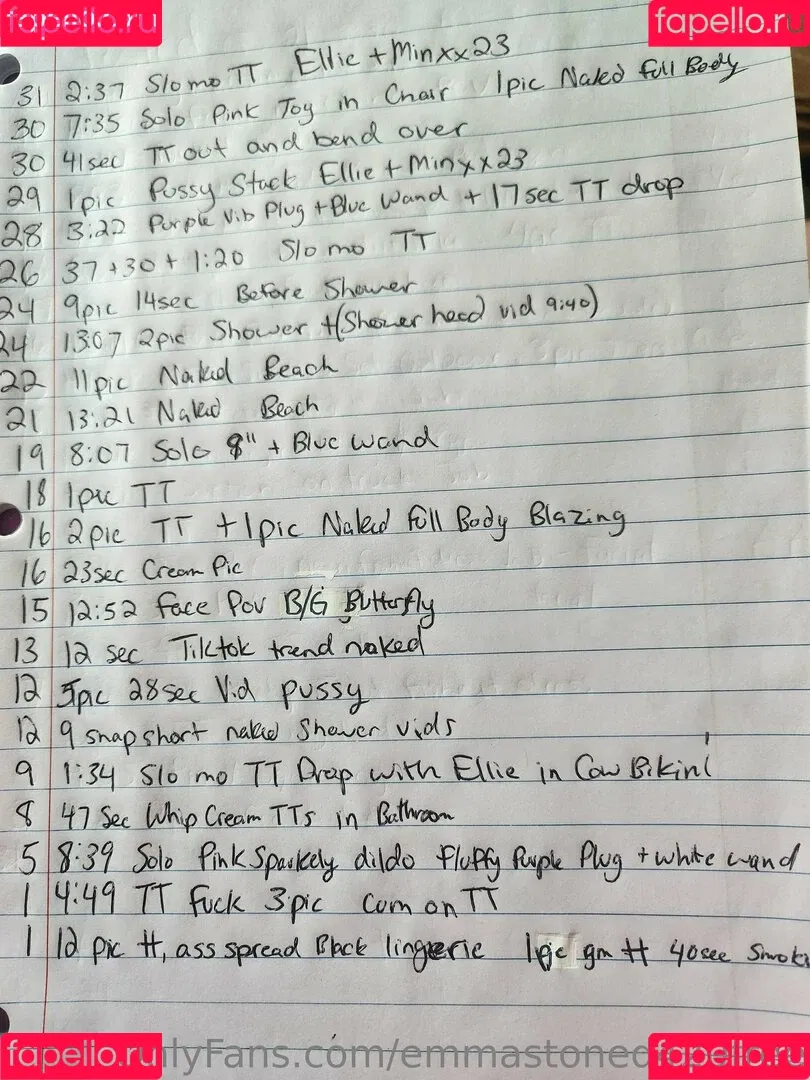 fapello.ru fapello.ru
Ellie + Minxx23
31 2:37 Slo mo TT
30 7:35 Solo Pink Toy in Chair 1pic Naked Full Body
30 41sec TT out and bend over
29 1pic Pussy Stack Ellie + Minxx23
28 3:22 Purple Vib Plug + Blue Wand + 17sec TT drop
26 37+30+1:20 Slo mo TT
24 9pic 14sec Before Shower
24 13:07 2pic Shower + (Shower head vid 9:40)
22 11pic Naked Beach
21 13:21 Naked Beach
19 8:07 Solo 8" + Blue Wand
18 1pic TT
16 2pic TT + 1pic Naked Full Body Blazing
16 23sec Cream Pic
15 12:52 Face Pov B/G Butterfly
13 12 sec Tiktok trend naked
12 5pic 28sec Vid pussy
12 9 snap short naked Shower vids
9 1:34 Slo mo TT Drop with Ellie in Cow Bikini
8 47 Sec Whip Cream TTs in Bathroom
5 8:39 Solo Pink Sparkely dildo fluffy Purple Plug + white wand
1 4:49 TT Fuck 3pic Cum on TT
1 12 pic tt, ass spread Black lingerie 1pic gm tt 40sec
fapello.ru nlyFans.com/emmastone fapello.ru